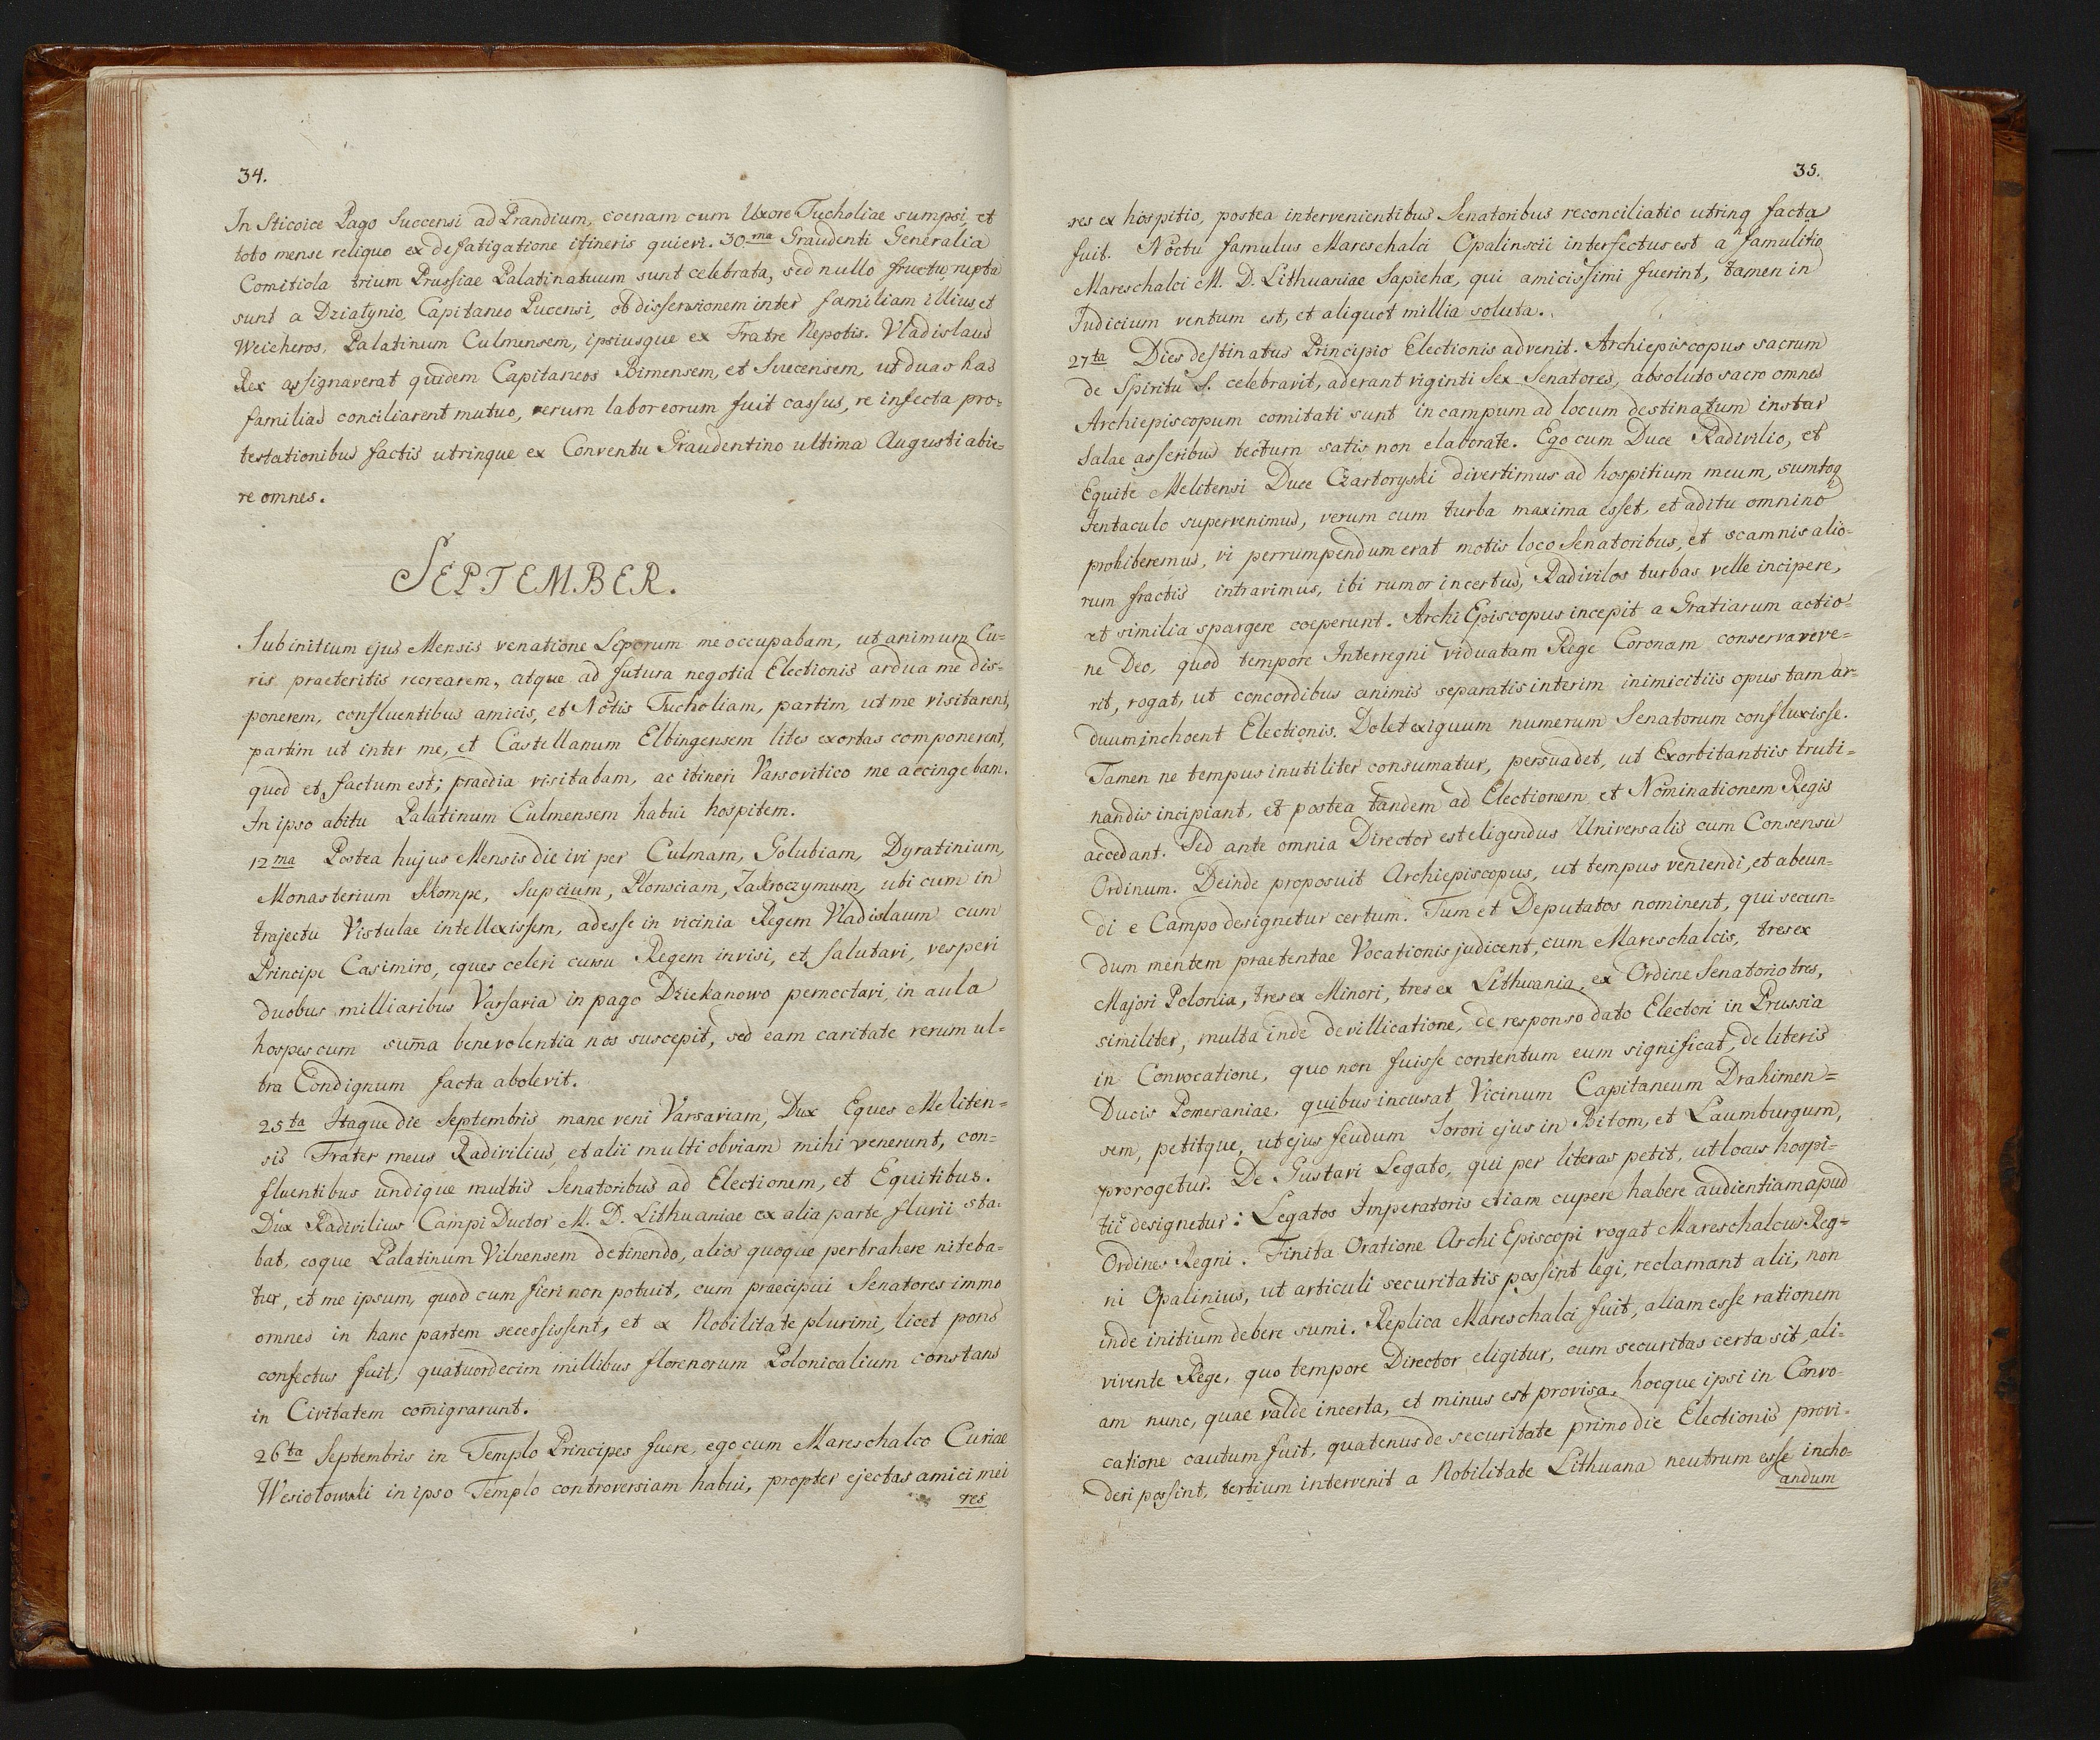 34.
In Sticoice Pago Succensi ad Prandium, coenam cum Uxore Tucholiae sumpsi, et
toto mense reliquo ex defatigatione itineris quievi. 30.ma Graudenti Generalia
Comitiola trium Prussiae Palatinatuum sunt celebrata, sed nullo fructu, rupta
sunt a Dzialynio, Capitaneo Pucensi, ob dissensionem inter familiam illius, et
Weicheros, Palatinum Culmensem, ipsiusque ex Fratre Nepotis. Vladislaus
Rex assignaverat quidem Capitaneos Bimensem, et Suecensem, ut duas has
familias conciliarent mutuo, verum labor eorum fuit cassus, re infecta pro=
testationibus factis utrinque ex Conventu Graudentino ultima Augusti abie=
re omnes.
SEPTEMBER.
Sub initium ejus Mensis venatione Leporum me occupabam, ut animum Cu=
ris praeteritis recrearem, atque ad futura negotia Electionis ardua me dis=
ponerem, confluentibus amicis, et Notis Tucholiam, partim, ut me visitarent,
partim ut inter me, et Castellanum Elbingensem lites exortas componerent,
quod et factum est; praedia visitabam, ac itineri Varsovitico me accingebam.
In ipso abitu Palatinum Culmensem habui hospitem.
12ma Postea hujus Mensis die ivi per Culmam, Golubiam, Dyratinium,
Monasterium Skompe, Supcium, Plonsciam, Zakroczymum, ubi cum in
trajectu Vistulae intellexissem, adesse in vicinia Regem Vladislaum cum
Principe Casimiro, eques celeri cursu Regem invisi, et salutavi, vesperi
duobus milliaribus Varsavia in pago Dziekanowo pernoctavi, in aula
hospes cum sum̄a benevolentia nos suscepit, sed eam caritate rerum ul=
tra Condignum facta abolevit.
25ta Itaque die Septembris mane veni Varsaviam, Dux Eques Meliten=
sis Frater meus Radivilius, et alii multi obviam mihi venerunt, con=
fluentibus undique multis Senatoribus ad Electionem, et Equitibus.
Dux Radivilius Campi Ductor M. D. Lithuaniae ex alia parte fluvii sta=
bat, eoque Palatinum Vilnensem detinendo, alios quoque pertrahere niteba=
tur, et me ipsum, quod cum fieri non potuit, cum praecipui Senatores immo
omnes in hanc partem secessissent, et ex Nobilitate plurimi, licet pons
confectus fuit, quatuordecim millibus florenorum Polonicalium constans
in Civitatem com̄igrarunt.
26ta Septembris in Templo Principes fuere, ego cum Mareschalco Curiae
Wesiolowski in ipso Templo controversiam habui, propter ejectas amici mei
res
35.
res ex hospitio, postea intervenientibus Senatoribus reconciliatio utrinq facta
fuit. Noctu famulus Mareschalci Opalinscii interfectus est a famulitio
Mareschalci M. D. Lithuaniae Sapiehæ, qui amicissimi fuerint, tamen in
Judicium ventum est, et aliquot millia soluta.
27ta Dies destinatus Principio Electionis advenit. Archiepiscopus sacrum
de Spiritu S. celebravit, aderant viginti Sex Senatores, absoluto sacro omnes
Archiepiscopum comitati sunt in campum ad locum destinatum instar
Salae asseribus tectum satis non elaborate. Ego cum Duce Radivilio, et
Equite Melitensi Duce Czartoryski divertimus ad hospitium meum, sumtoq
Jentaculo supervenimus, verum cum turba maxima esset, et aditu omnino
prohiberemus, vi perrumpendum erat motis loco Senatoribus, et scamnis alio=
rum fractis intravimus, ibi rumor incertus, Radivilos turbas velle incipere,
et similia spargere coeperunt. Archi Episcopus incepit a Gratiarum actio=
ne Deo, quod tempore Interregni viduatam Rege Coronam conservareve=
rit, rogat, ut concordibus animis separatis interim inimicitiis opus tam ar=
duum inchoent Electionis. Dolet exiguum numerum Senatorum confluxisse.
Tamen ne tempus inutiliter consumatur, persuadet, ut Exorbitantiis truti=
nandis incipiant, et postea tandem ad Electionem et Nominationem Regis
accedant. Sed ante omnia Director est eligendus Universalis cum Consensu
Ordinum. Deinde proposuit Archiepiscopus, ut tempus veniendi, et abeun=
di e Campo designetur certum. Tum et Deputatos nominent, qui secun=
dum mentem praetentae Vocationis judicent, cum Mareschalcis, tres ex
Majori Polonia, tres ex Minori, tres ex Lithuania, ex Ordine Senatorio tres,
similiter, multa inde de villicatione, de responso dato Electori in Prussia
in Convocatione, quo non fuisse contentum eum significat, de literis
Ducis Pomeraniae, quibus incusat Vicinum Capitaneum Drahimen=
sem, petitque, ut ejus feudum Sorori ejus in Bitom, et Laumburgum,
prorogetur. De Gustavi Legato, qui per literas petit, ut locus hospi=
tii designetur: Legatos Imperatoris etiam cupere habere audientiam apud
Ordines Regni. Finita Oratione Archi Episcopi rogat Mareschalcus Reg=
ni Opalinius, ut articuli securitatis possint legi, reclamant alii, non
inde initium debere sumi. Replica Mareschalci fuit, aliam esse rationem
vivente Rege, quo tempore Director eligitur, cum securitas certa sit, ali=
am nunc, quae valde incerta, et minus est provisa, hocque ipsi in Convo=
catione cautum fuit, quatenus de securitate primo die Electionis provi=
deri possint, tertium intervenit a Nobilitate Lithuana neutrum esse incho=
andum